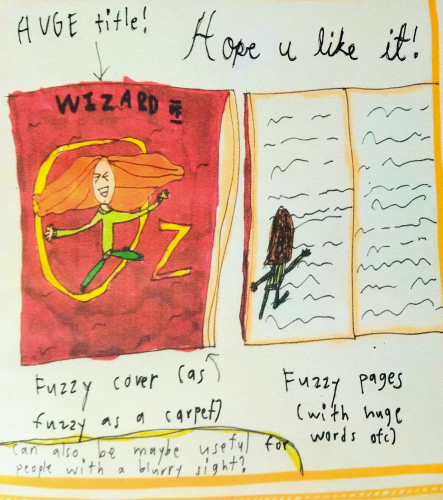 HUGE title!
Hope u like it!
WIZARD OF
OZ
Fuzzy cover (as
fuzzy as a carpet)
Fuzzy pages
(with huge
words ofc)
can also be maybe useful for
people with a blurry sight?